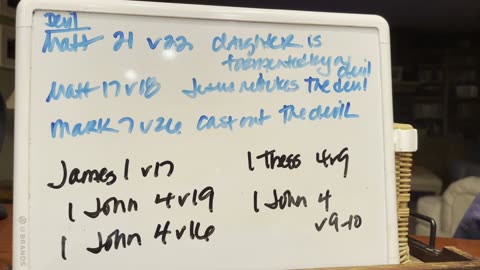 Devil
Matt 21 v22 daughter is
tormented by a devil
Matt 17 v18 Jesus rebukes the devil
Mark 7 v26 cast out the devil
James 1 v17
1 John 4 v19
1 John 4 v16
1 Thess 4 v9
1 John 4
v 9-10
U BRANDS